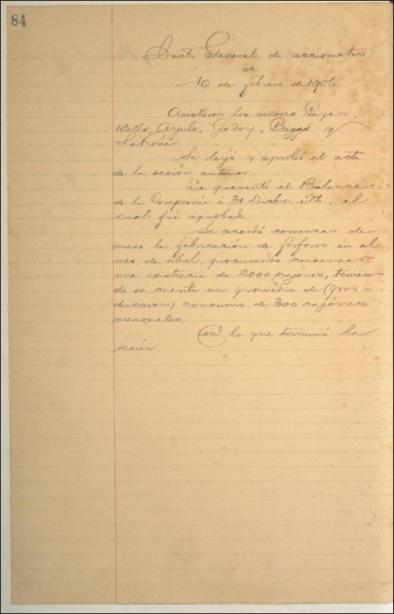 84
Junta General de accionistas
de
10 de febrero de 1906
Asistieron los señores Payán
Wells, Zúñiga, Godoy, y
Se leyó y aprobó el acta
de la sesión anterior.
Se presentó el Balance
de la Compañía á 31 Dicbre. ulto., el
cual fué aprobado.
Se acordó comenzar de
nuevo la fabricación de fósforos en el
mes de abril, procurando conservar
una existencia de 2000 cajones, tenien-
do en cuenta un promedio de (pro-
duccion) consumo de 300 cajones
mensuales.
Con lo que terminó la
sesión.